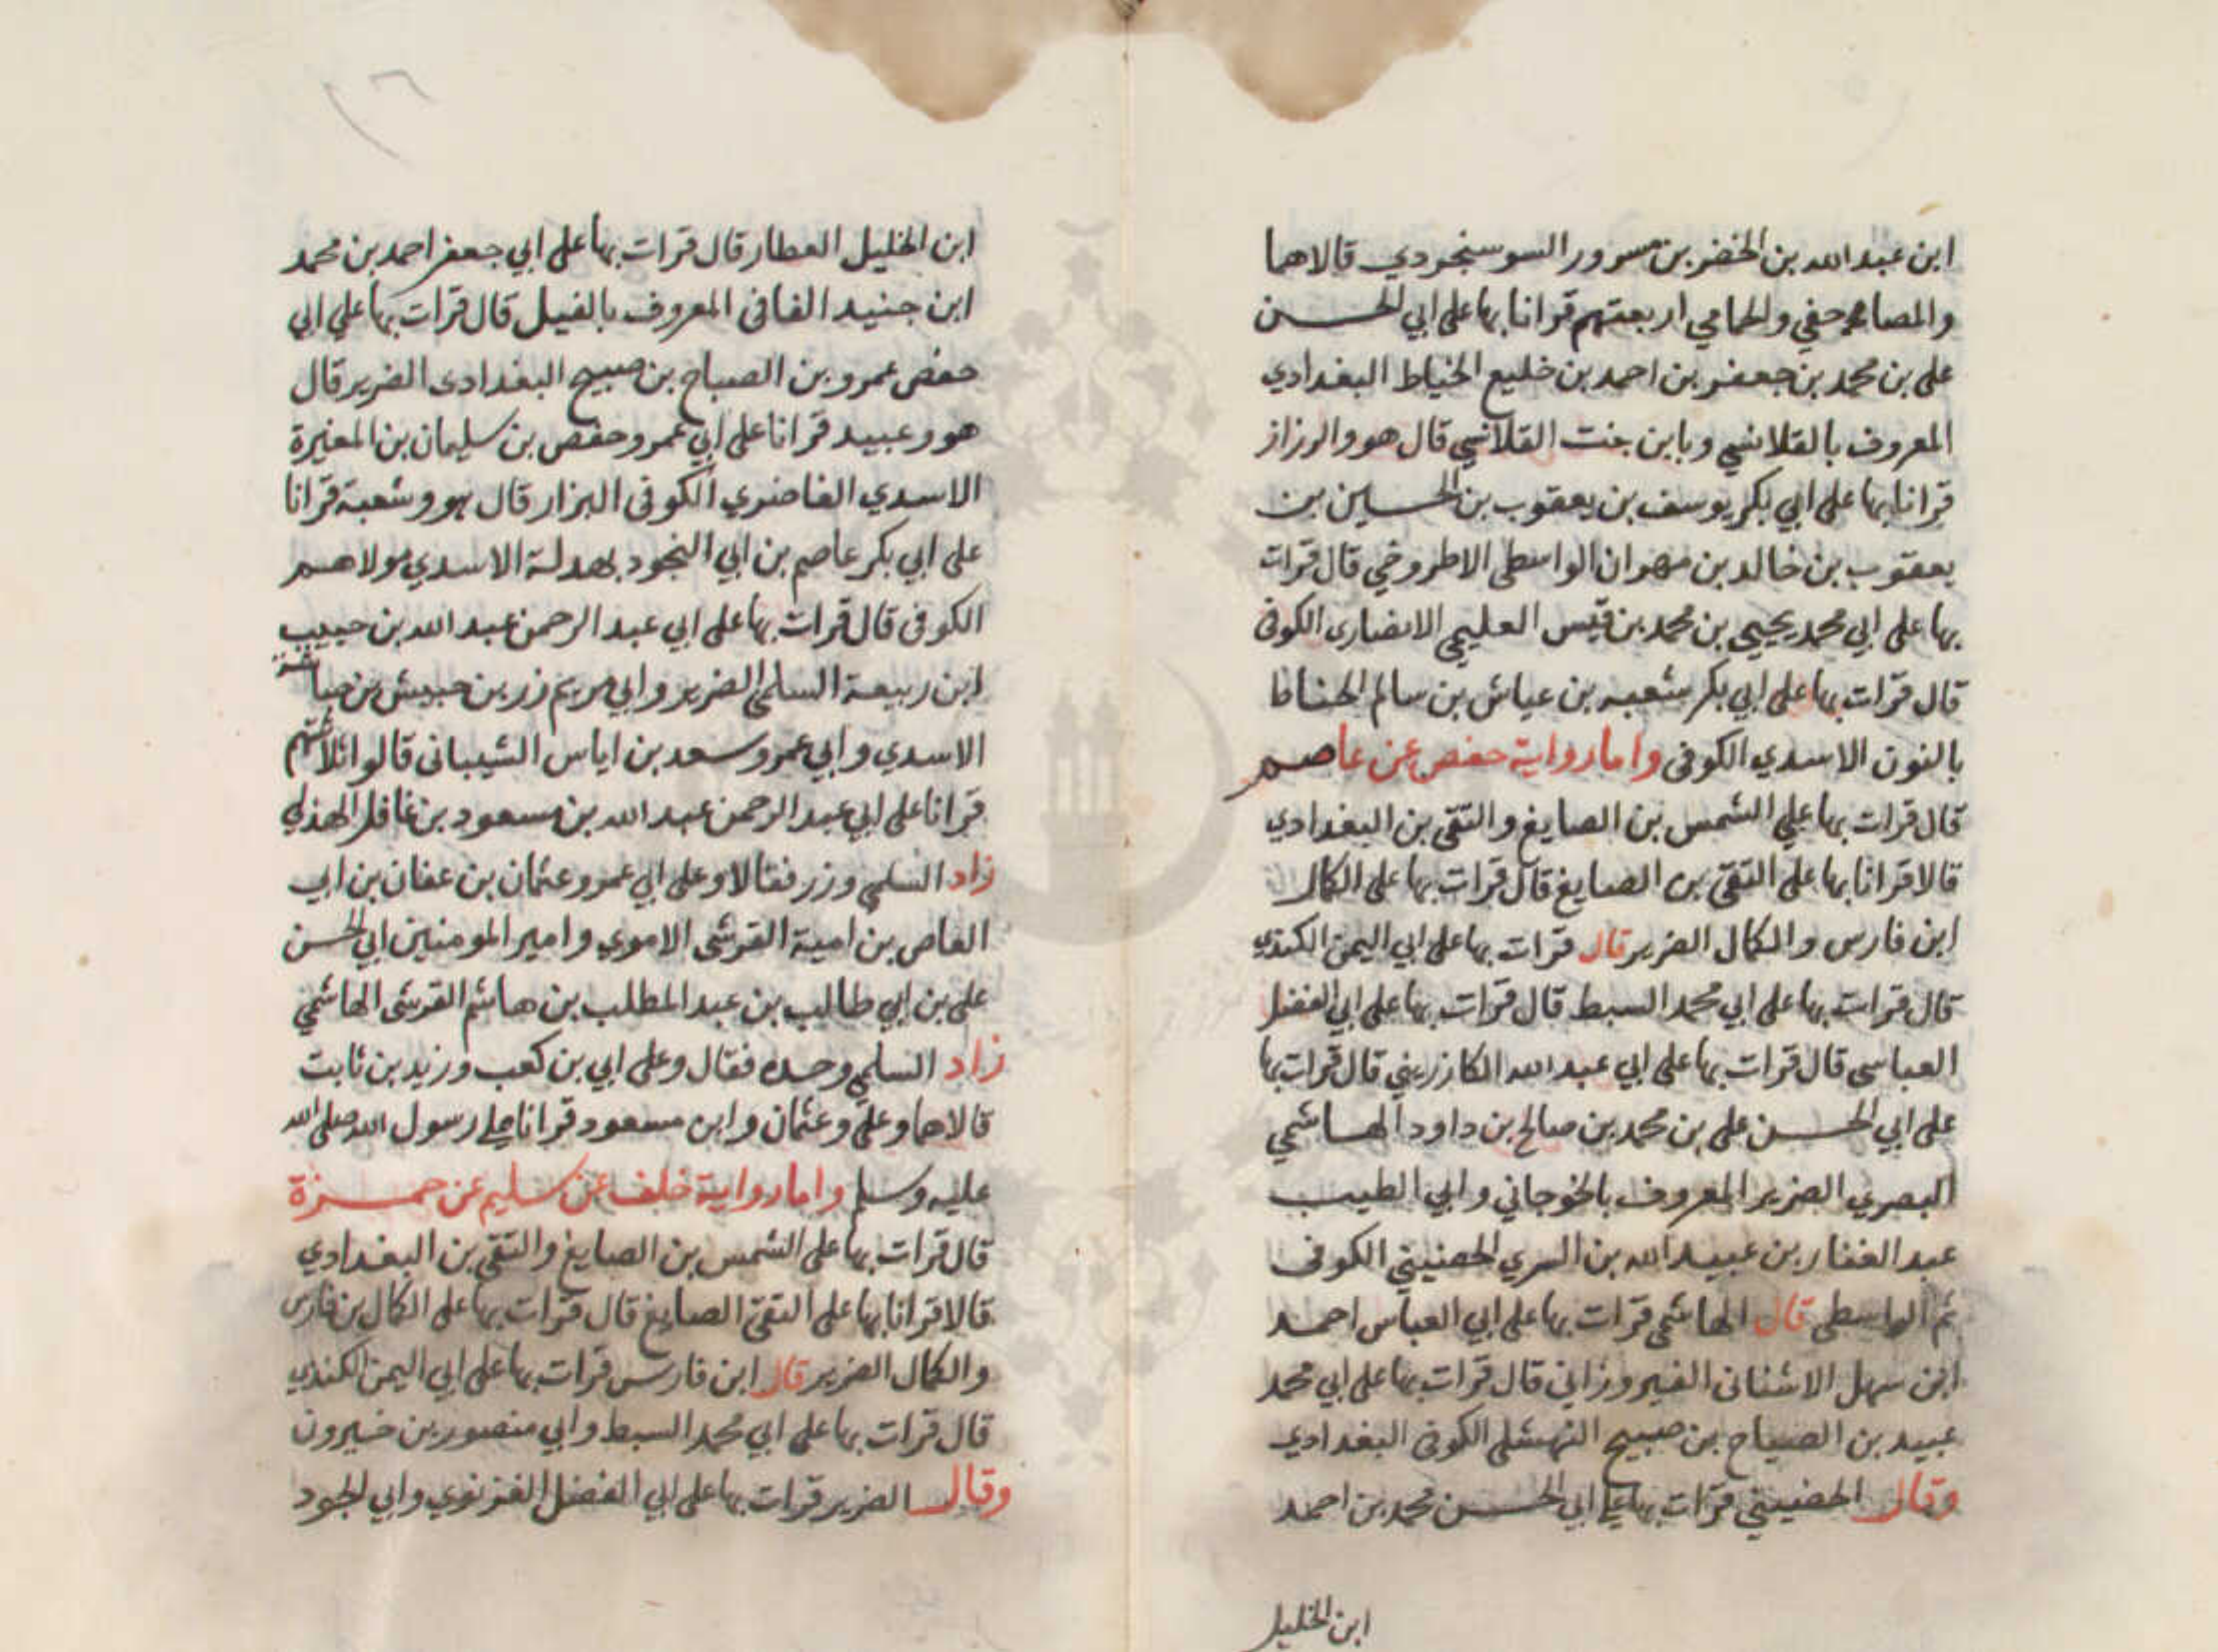 ابن عبد الله بن الخضر بن مسرور السوسنجردي قالاهما
والمصاحفي والحمامي اربعتهم قرانا بها على ابي الحسن
على بن محمد بن جعفر بن احمد بن خليع الخياط البغدادي
المعروف بالقلانسي وبابن بنت القلانسي قال هو والرزاز
قرانا بها على ابي بكر يوسف بن يعقوب بن الحسين بن
يعقوب بن خالد بن مهران الواسطي الاطروخي قال قرات
بها على ابي محمد يحيى بن محمد بن قيس العليمي الانصاري الكوفي
قال قرات بها على ابي بكر شعبه بن عياش بن سالم الحناط
بالنون الاسدي الكوفي واما رواية حفص عن عاصم
قال قرات بها علي الشمس بن الصايغ والتقى بن البغدادي
قالا قرانا بها على التقى بن الصايغ قال قرات بها على الكمال
ابن فارس والكمال الضرير قال قرات بها على ابي اليمن الكندي
قال قرات بها على ابي محمد السبط قال قرات بها على ابي الفضل
العباسي قال قرات بها على ابي عبد الله الكازريني قال قرات بها
على ابي الحسن على بن محمد بن صالح بن داود الهاشمي
البصري الضرير المعروف بالخوجاني وابي الطيب
عبد الغفار بن عبيد الله بن السري الحضيني الكوفي
ثم الواسطي قال الهاشمي قرات بها على ابي العباس احمد
ابن سهل الاشناني الفيروزاني قال قرات بها على ابي محمد
عبيد بن الصباح بن صبيح النهشلي الكوفي البغدادي
وقال الحضيني قرات بها على ابي الحسن محمد بن احمد
ابن الخليل
ابن الخليل العطار قال قرات بها على ابي جعفر احمد بن محمد
ابن جنيد الفافى المعروف بالفيل قال قرات بها علي ابي
حفص عمرو بن الصباح بن صبيح البغدادى الضرير قال
هو وعبيد قرانا على ابي عمرو حفص بن سليمان بن المغيرة
الاسدي الغاضري الكوفى البزار قال هو وشعبة قرانا
على ابي بكر عاصم بن ابي النجود بهدلة الاسدي مولاهم
الكوفى قال قرات بها على ابي عبد الرحمن عبد الله بن حبيب
ابن ربيعة السلمي الضرير وابي مريم زر بن حبيش بن حباشة
الاسدي وابي عمرو سعد بن اياس الشيباني قالوا ثلاثتهم
قرانا على ابي عبد الرحمن عبد الله بن مسعود بن غافل الهذلي
زاد السلمي وزر فقالا وعلى ابي عمرو عثمان بن عفان بن ابي
العاص بن امية القرشي الاموي وامير المومنين ابي الحسن
على بن ابي طالب بن عبد المطلب بن هاشم القرشى الهاشمي
زاد السلمي وحده فقال وعلى ابي بن كعب وزيد بن ثابت
قالاهما وعلي وعثمان وابن مسعود قرانا على رسول الله صلى الله
عليه وسلم واما رواية خلف عن سليم عن حمزة
قال قرات بها على الشمس بن الصايغ والتقى بن البغدادي
قالا قرانا بها على التقى الصايغ قال قرات بها على الكمال بن فارس
والكمال الضرير قال ابن فارس قرات بها على ابي اليمن الكندي
قال قرات بها على ابي محمد السبط وابي منصور بن خيرون
وقال الضرير قرات بها على ابي الفضل الغزنوي وابي الجود